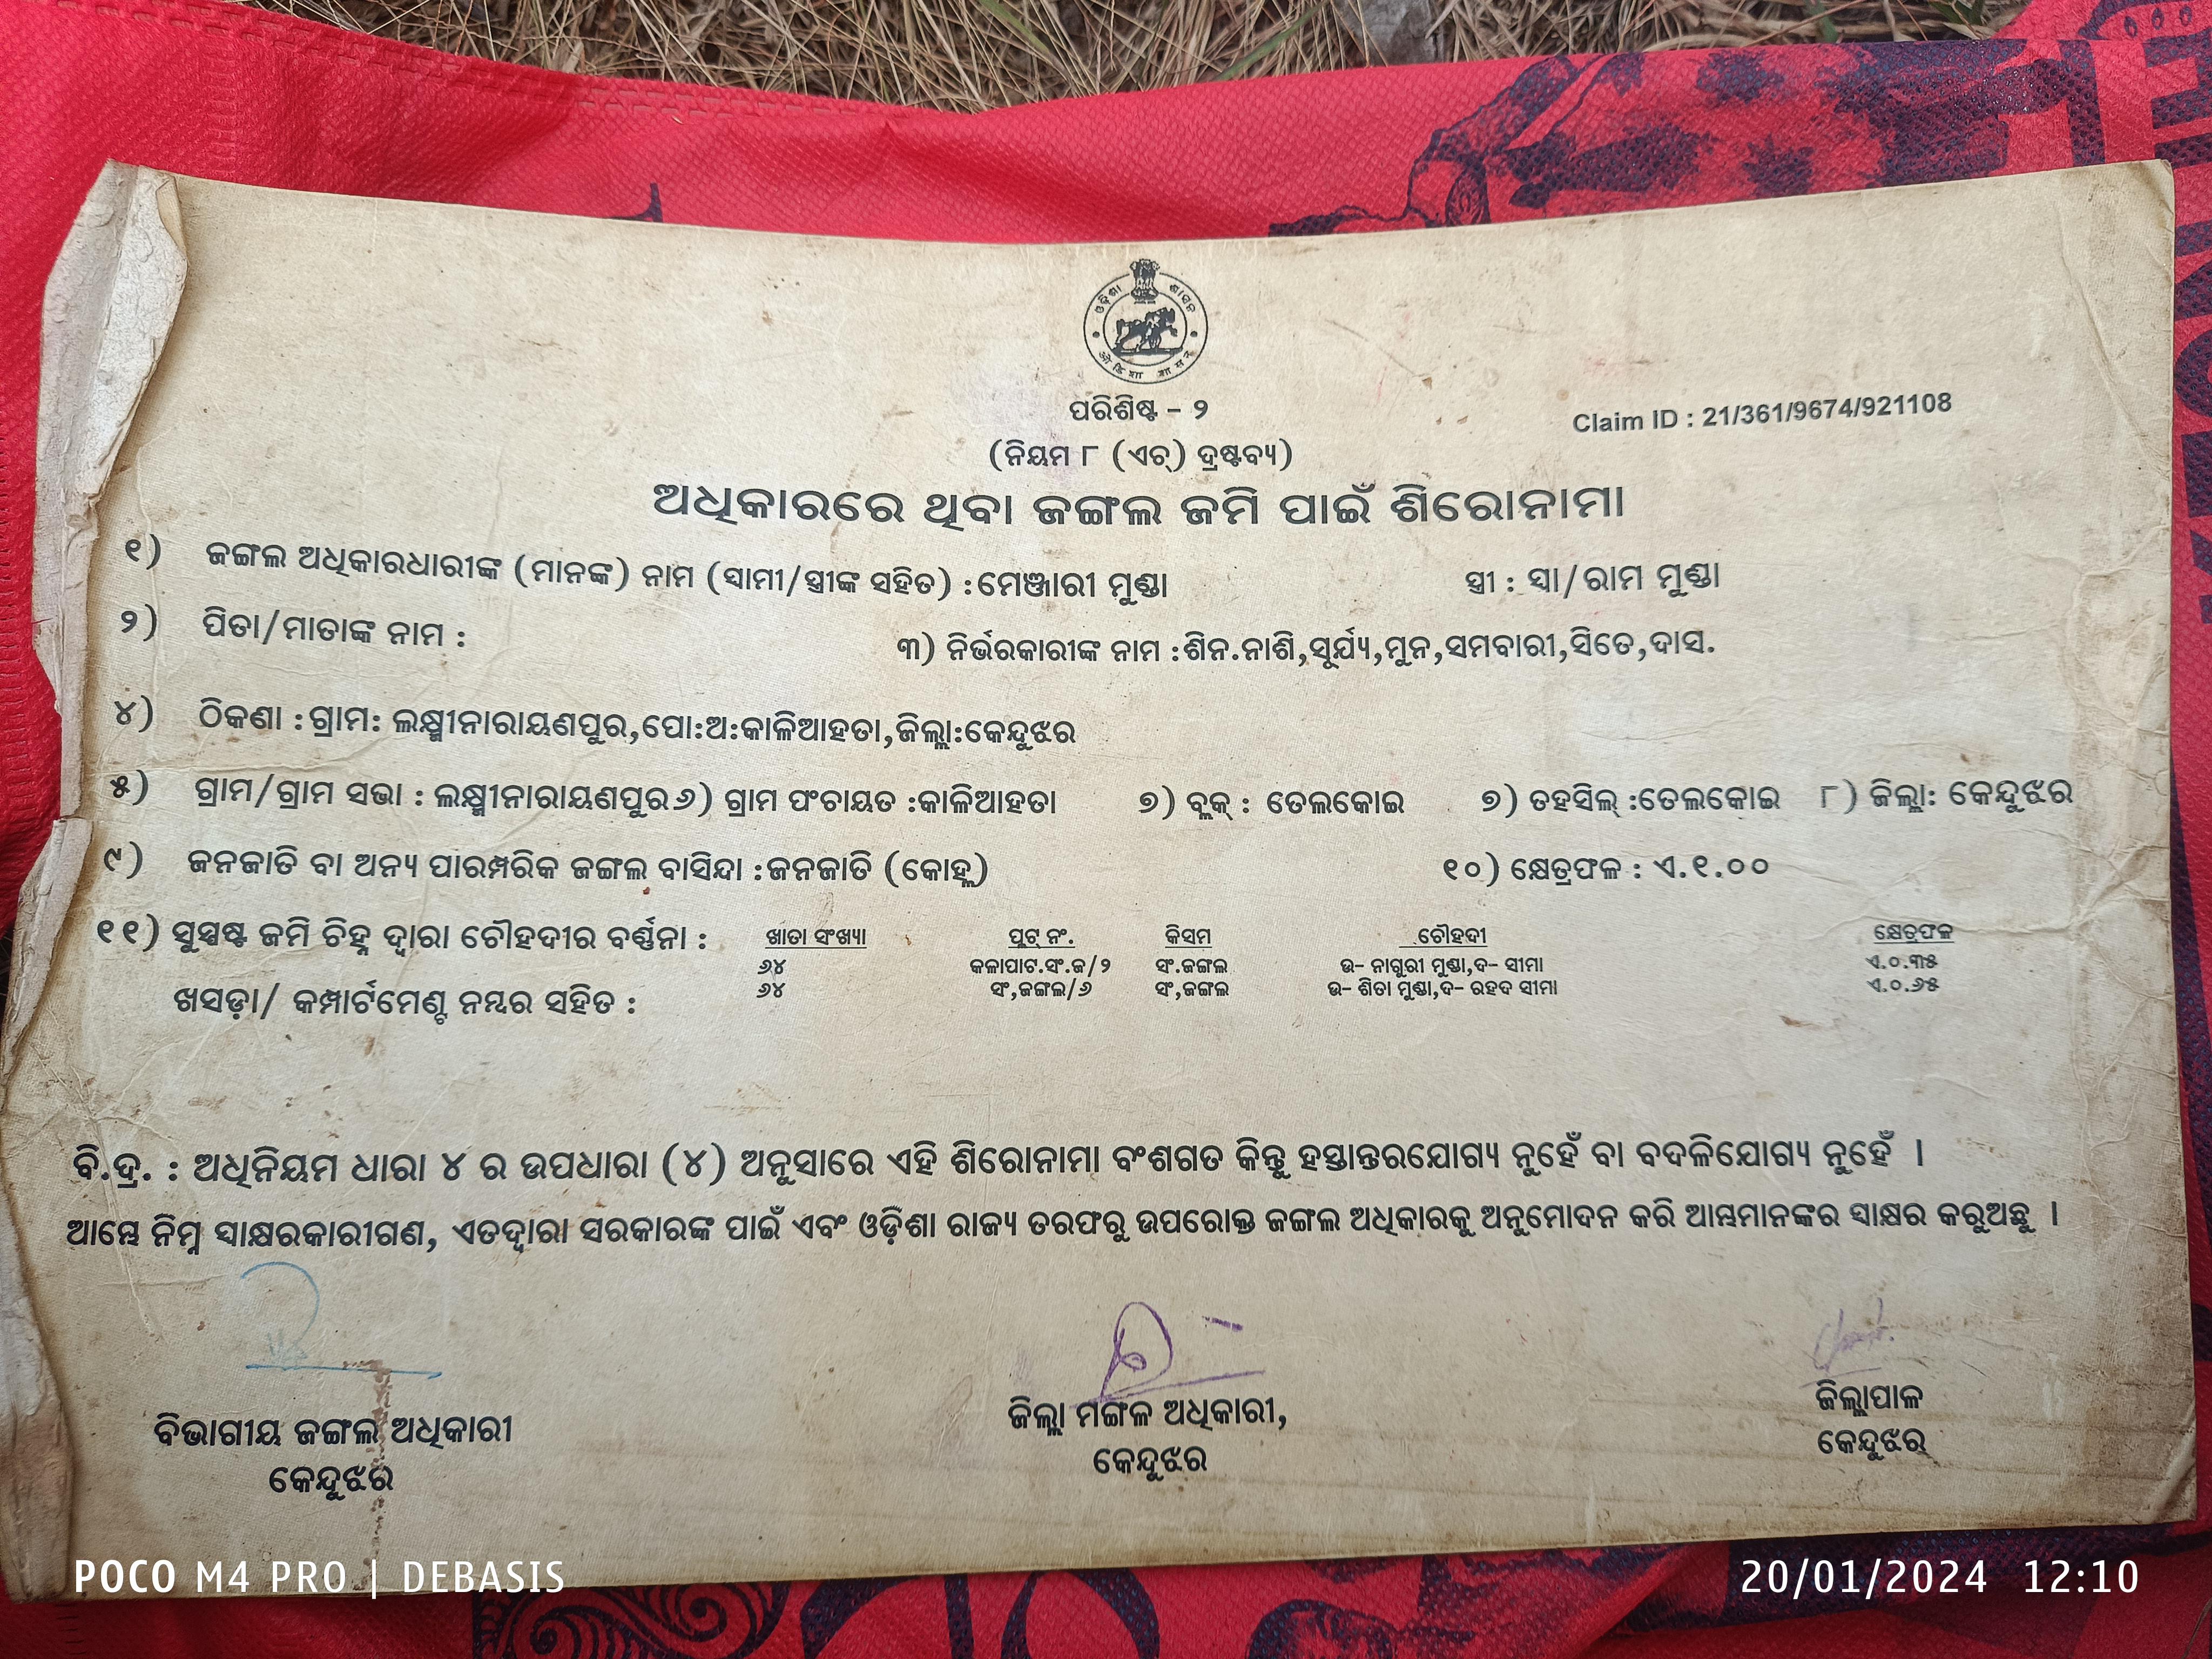 ଓଡ଼ିଶା ଶାସନ
ओडिशा शासन
ପରିଶିଷ୍ଟ - ୨
Claim ID : 21/361/9674/921108
(ନିୟମ ୮ (ଏଚ୍) ଦ୍ରଷ୍ଟବ୍ୟ)
ଅଧିକାରରେ ଥିବା ଜଙ୍ଗଲ ଜମି ପାଇଁ ଶିରୋନାମା
୧) ଜଙ୍ଗଲ ଅଧିକାରଧାରୀଙ୍କ (ମାନଙ୍କ) ନାମ (ସ୍ୱାମୀ/ସ୍ତ୍ରୀଙ୍କ ସହିତ) :ମେଞ୍ଜାରୀ ମୁଣ୍ଡା ସ୍ତ୍ରୀ : ସ୍ୱା/ରାମ ମୁଣ୍ଡା
୨) ପିତା/ମାତାଙ୍କ ନାମ : ୩) ନିର୍ଭରକାରୀଙ୍କ ନାମ :ଶିନ.ନାଶି,ସୂର୍ଯ୍ୟ,ମୁନ,ସମବାରୀ,ସିତେ,ଦାସ.
୪) ଠିକଣା :ଗ୍ରାମ: ଲକ୍ଷ୍ମୀନାରାୟଣପୁର,ପୋ:ଅ:କାଳିଆହତା,ଜିଲ୍ଲା:କେନ୍ଦୁଝର
୫) ଗ୍ରାମ/ଗ୍ରାମ ସଭା : ଲକ୍ଷ୍ମୀନାରାୟଣପୁର ୬) ଗ୍ରାମ ପଂଚାୟତ :କାଳିଆହତା ୭) ବ୍ଲକ୍ : ତେଲକୋଇ ୭) ତହସିଲ୍ :ତେଲକୋଇ ୮) ଜିଲ୍ଲା: କେନ୍ଦୁଝର
୯) ଜନଜାତି ବା ଅନ୍ୟ ପାରମ୍ପରିକ ଜଙ୍ଗଲ ବାସିନ୍ଦା :ଜନଜାତି (କୋହ୍ଲ) ୧୦) କ୍ଷେତ୍ରଫଳ : ଏ.୧.୦୦
୧୧) ସୁସ୍ପଷ୍ଟ ଜମି ଚିହ୍ନ ଦ୍ୱାରା ଚୌହଦୀର ବର୍ଣ୍ଣନା : ଖାତା ସଂଖ୍ୟା ପ୍ଲଟ୍ ନଂ. କିସମ ଚୌହଦୀ କ୍ଷେତ୍ରଫଳ
୬୪ କଳାପାଟ.ସଂ.ଜ/୨ ସଂ.ଜଙ୍ଗଲ ଉ- ନାଗୁରୀ ମୁଣ୍ଡା,ଦ- ସୀମା ଏ.୦.୩୫
ଖସଡ଼ା/ କମ୍ପାର୍ଟମେଣ୍ଟ ନମ୍ବର ସହିତ : ୬୪ ସଂ,ଜଙ୍ଗଲ/୬ ସଂ,ଜଙ୍ଗଲ ଉ- ଶିତା ମୁଣ୍ଡା,ଦ- ରହଦ ସୀମା ଏ.୦.୬୫
ବି.ଦ୍ର. : ଅଧିନିୟମ ଧାରା ୪ ର ଉପଧାରା (୪) ଅନୁସାରେ ଏହି ଶିରୋନାମା ବଂଶଗତ କିନ୍ତୁ ହସ୍ତାନ୍ତରଯୋଗ୍ୟ ନୁହେଁ ବା ବଦଳିଯୋଗ୍ୟ ନୁହେଁ ।
ଆମ୍ଭେ ନିମ୍ନ ସ୍ୱାକ୍ଷରକାରୀଗଣ, ଏତଦ୍ୱାରା ସରକାରଙ୍କ ପାଇଁ ଏବଂ ଓଡ଼ିଶା ରାଜ୍ୟ ତରଫରୁ ଉପରୋକ୍ତ ଜଙ୍ଗଲ ଅଧିକାରକୁ ଅନୁମୋଦନ କରି ଆମ୍ଭମାନଙ୍କର ସ୍ୱାକ୍ଷର କରୁଅଛୁ ।
ବିଭାଗୀୟ ଜଙ୍ଗଲ ଅଧିକାରୀ ଜିଲ୍ଲା ମଙ୍ଗଳ ଅଧିକାରୀ, ଜିଲ୍ଲାପାଳ
କେନ୍ଦୁଝର କେନ୍ଦୁଝର କେନ୍ଦୁଝର
POCO M4 PRO | DEBASIS 20/01/2024 12:10